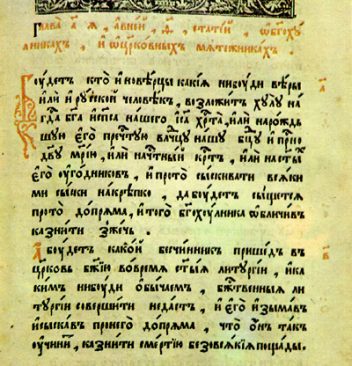 Глава а҃ ѧ, авней, ѳ҃, статей, ѡбг҃охꙋ
лникахъ, и ѡцр҃ковныхъ мѧтежникахъ
Боудетъ кто иновѣрцы какїѧ нибоуди вѣры
или и рꙋской человѣкъ, возложитъ хꙋлꙋ на
гдⷭ҇а бг҃а и сп҃са нашего іс҃а хрⷭ҇та, или нарождь
шꙋю єго прчⷭ҇тꙋю влⷣчцꙋ нашꙋ бц҃ꙋ и прⷭ҇но
дв҃ꙋ мр҃їю, или начⷭ҇тныи крⷭ҇тъ, или насты҃ѧ
єго оугодниковъ, и прото сыскивати всѧки
ми сыски накрѣпко, да боудетъ сыщетсѧ
прото допрѧма, и того бг҃охꙋлника ѡбличивъ
казнити зжечь.
а҃
А боудетъ какой бесчинникъ пришедъ въ
цр҃ковь бж҃їю вовремѧ ст҃ыѧ литꙋргїи, и ка
кимъ нибоуди ѡбычаемъ, бжⷭ҇твеныѧ ли
тꙋргїи совершити недастъ, и єго изымавъ
и сыскавъ пронего допрѧма, что ѻнъ такъ
оучинитъ, казнити смертїю безовсѧкїѧ пощады.
в҃